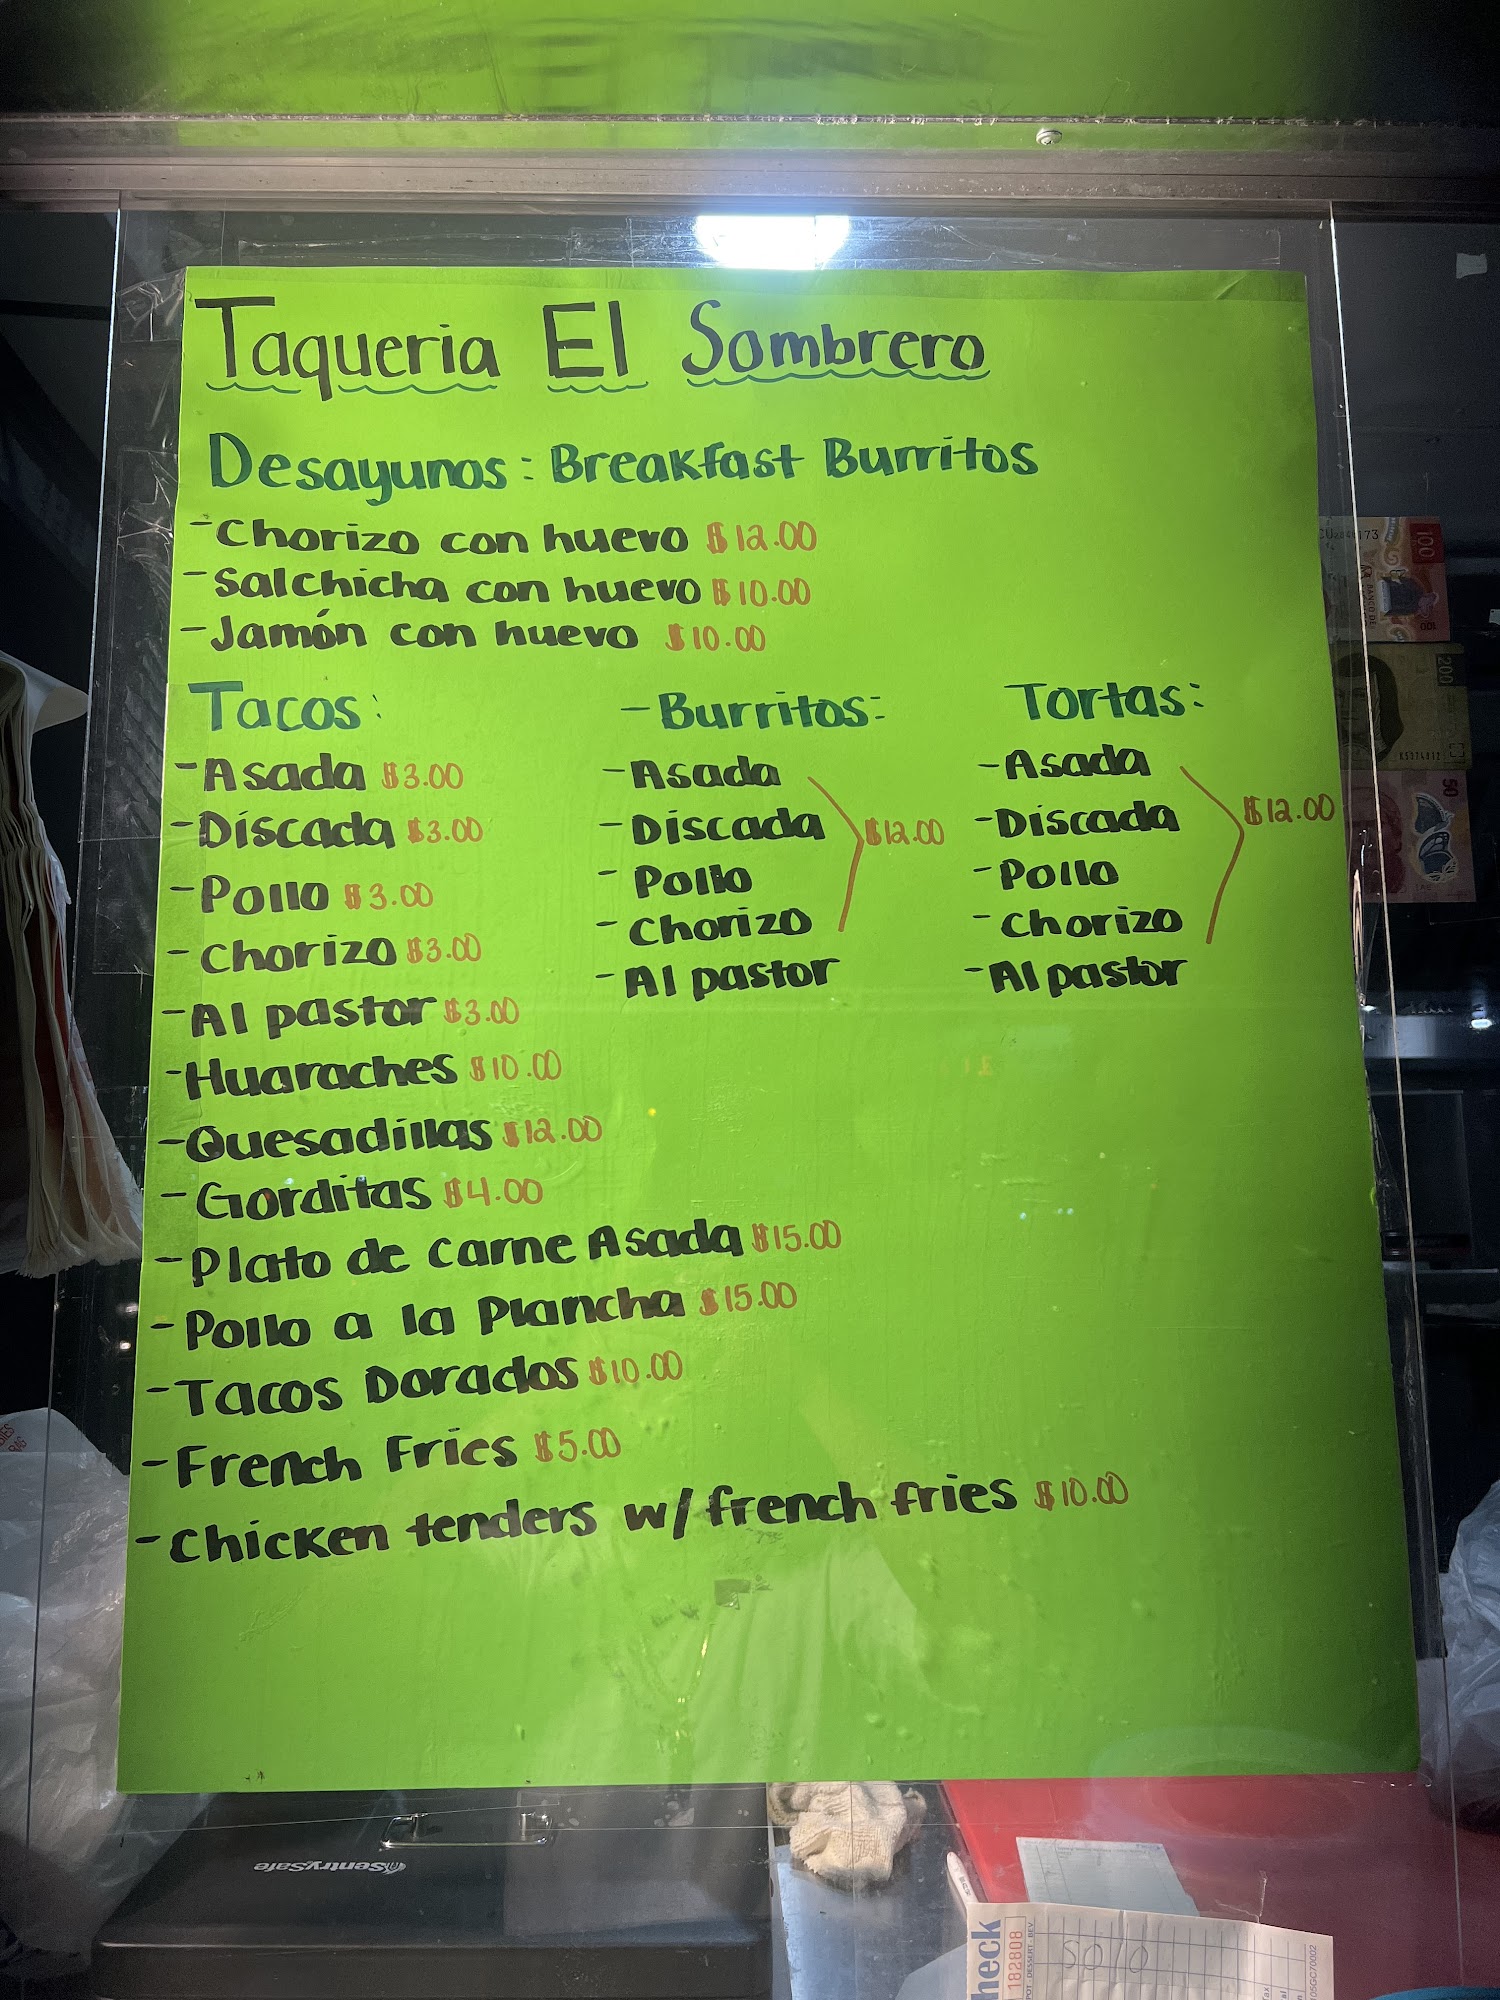 Taqueria El Sombrero
Desayunos: Breakfast Burritos
- Chorizo con huevo $12.00
- Salchicha con huevo $10.00
- Jamón con huevo $10.00
Tacos:
- Asada $3.00
- Discada $3.00
- Pollo $3.00
- Chorizo $3.00
- Al pastor $3.00
- Huaraches $10.00
- Quesadillas $12.00
- Gorditas $4.00
- Plato de Carne Asada $15.00
- Pollo a la Plancha $15.00
- Tacos Dorados $10.00
- French Fries $5.00
- Chicken tenders w/ french fries $10.00
- Burritos:
- Asada
- Discada
- Pollo
- Chorizo
- Al pastor
$12.00
Tortas:
- Asada
- Discada
- Pollo
- Chorizo
- Al pastor
$12.00
100
200
50
SentrySafe
heck
182808
SOLO